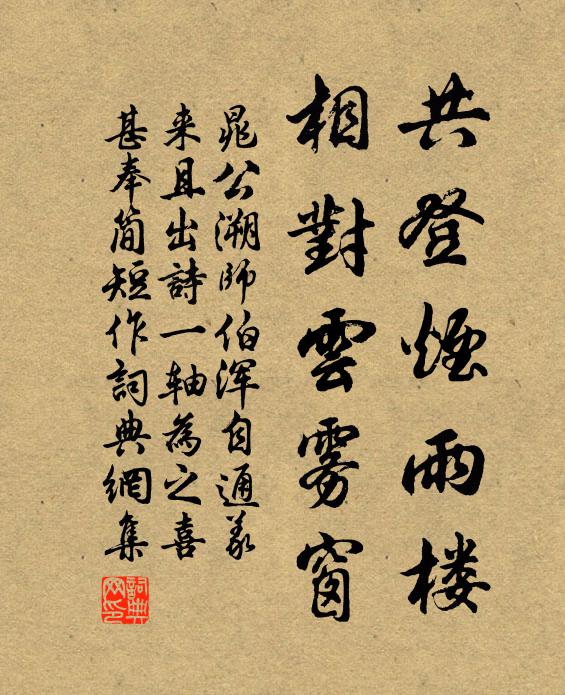 共登煙雨楼
相對雲雾窗
晁公溯師伯浑自通義
来且出詩一轴為之喜
甚奉简短作詞典網集
詞典网印